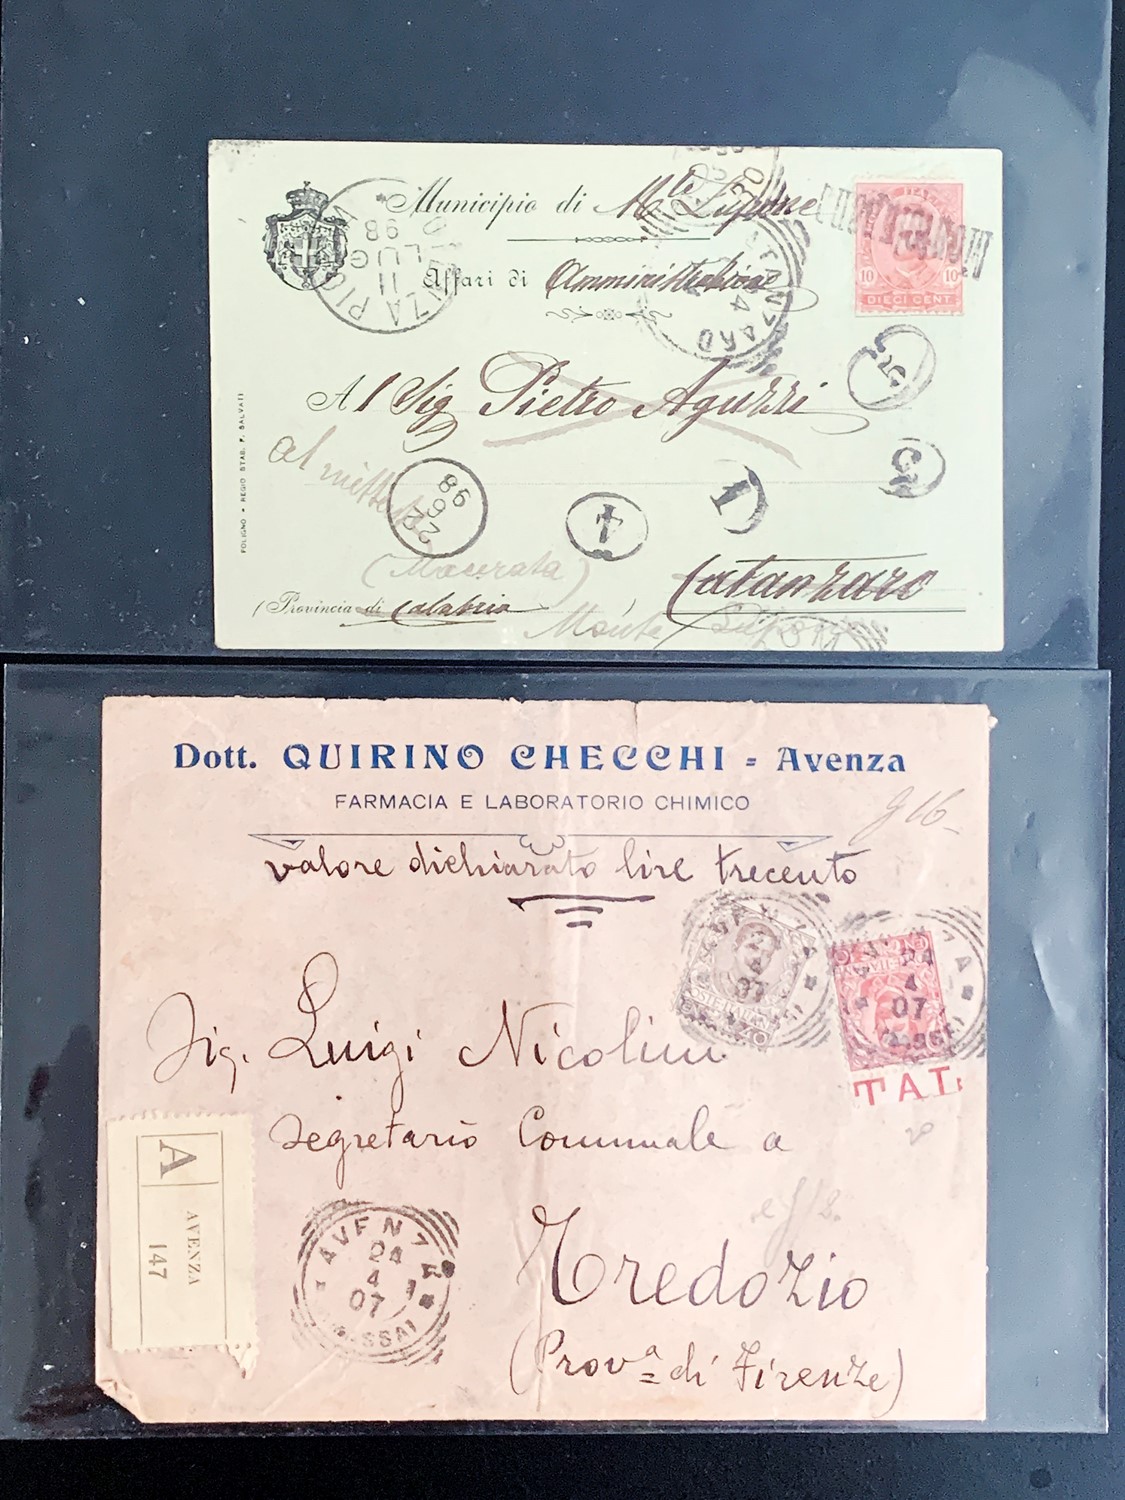 Municipio di Mte Lupone
Affari di Amministrazione
10 10
DIECI CENT.
11
LUG
98
Al Sig Pietro Aguzzi
al mittente
98
(Macerata)
Catanzaro
(Provincia di Calabria
Monte
FOLIGNO - REGIO STAB. F. SALVATI
5
3
1
4
Dott. QUIRINO CHECCHI = Avenza
FARMACIA E LABORATORIO CHIMICO
valore dichiarato lire trecento
24
4
07
TAL
Sig. Luigi Nicolini
segretario Comunale a
Tredozio
(Prov.a di Firenze)
A
AVENZA
147
AVENZA
24
4
07